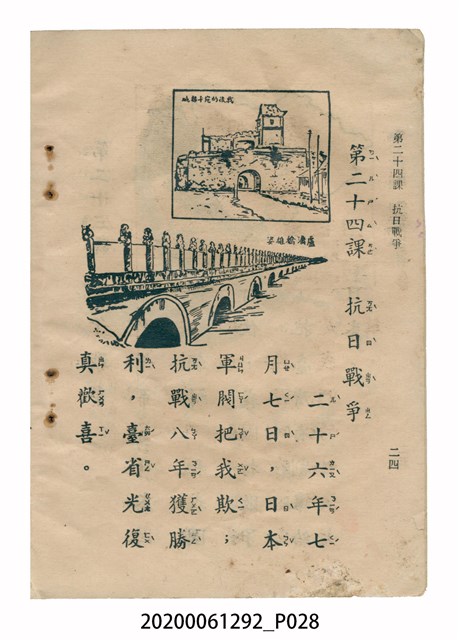 第二十四課　抗日戰爭
二四
第二十四課　抗日戰爭
戰後的宛平縣城
蘆溝橋雄姿
二十六年七
月七日，日本
軍閥把我欺；
抗戰八年獲勝
利，臺省光復
真歡喜。
20200061292_P028